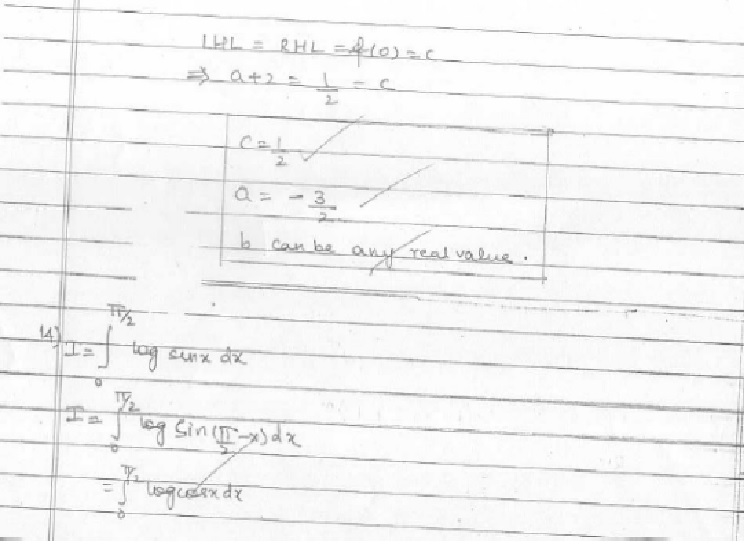 LHL = RHL = f(0) = c
⇒ a+2 = 1/2 = c
c = 1/2
a = -3/2
b can be any real value.
14) I = ∫₀^(π/2) log sinx dx
I = ∫₀^(π/2) log sin(π/2 - x) dx
= ∫₀^(π/2) log cosx dx